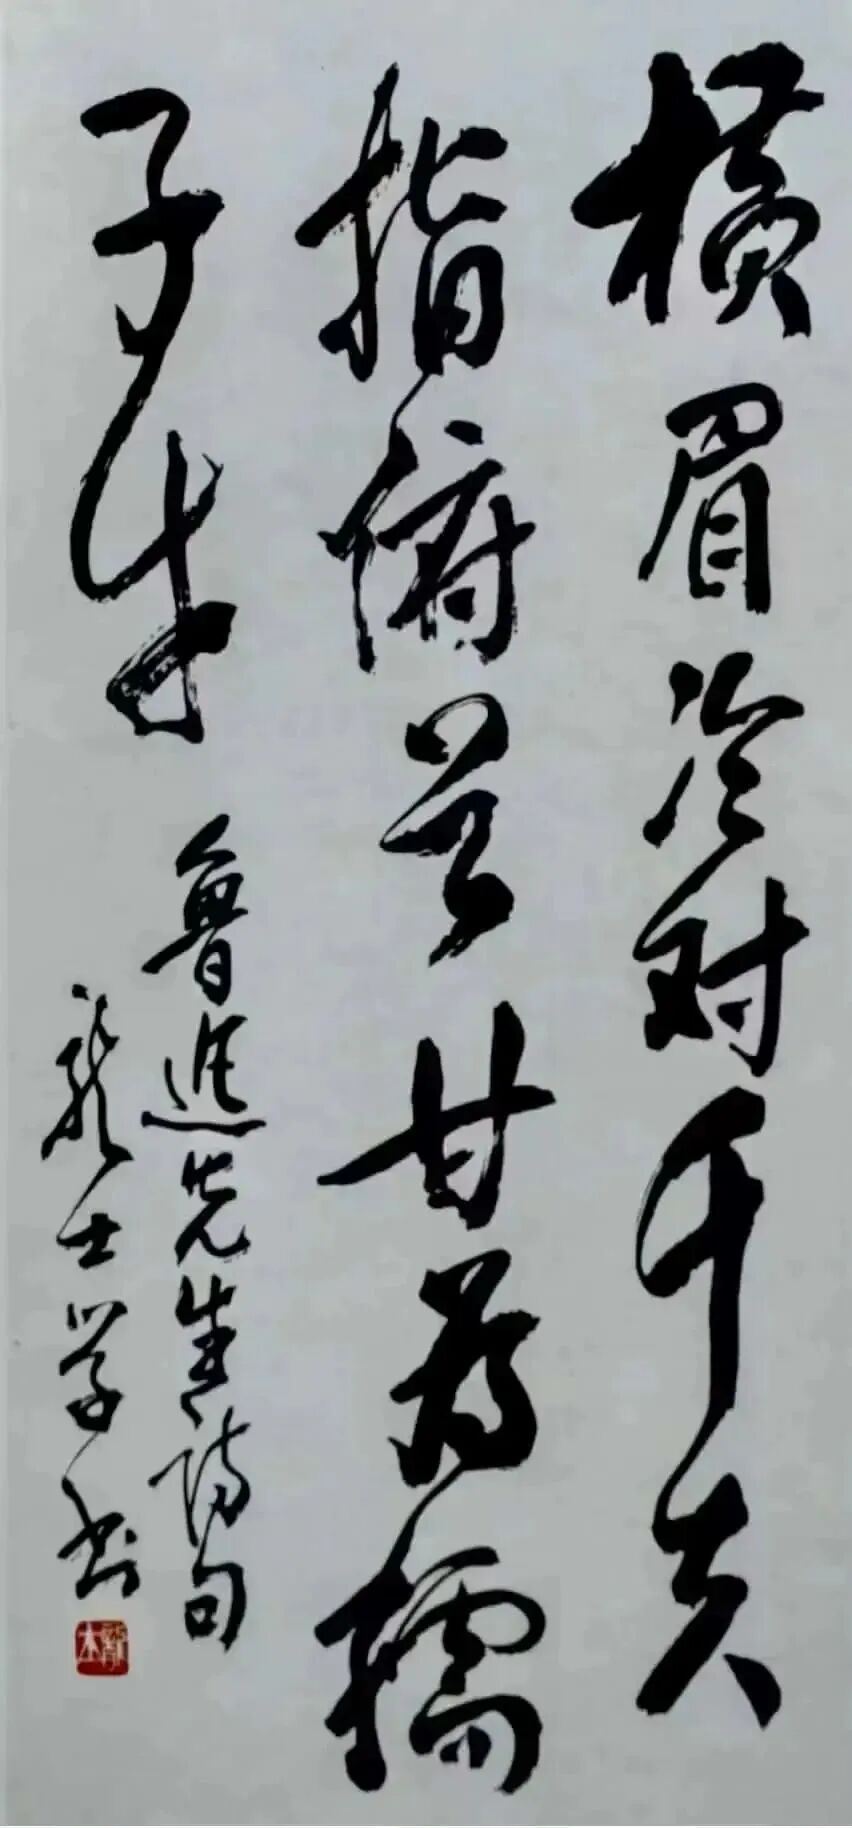 横眉冷对千夫
指俯首甘为孺
子牛
鲁迅先生诗句
龙士学书